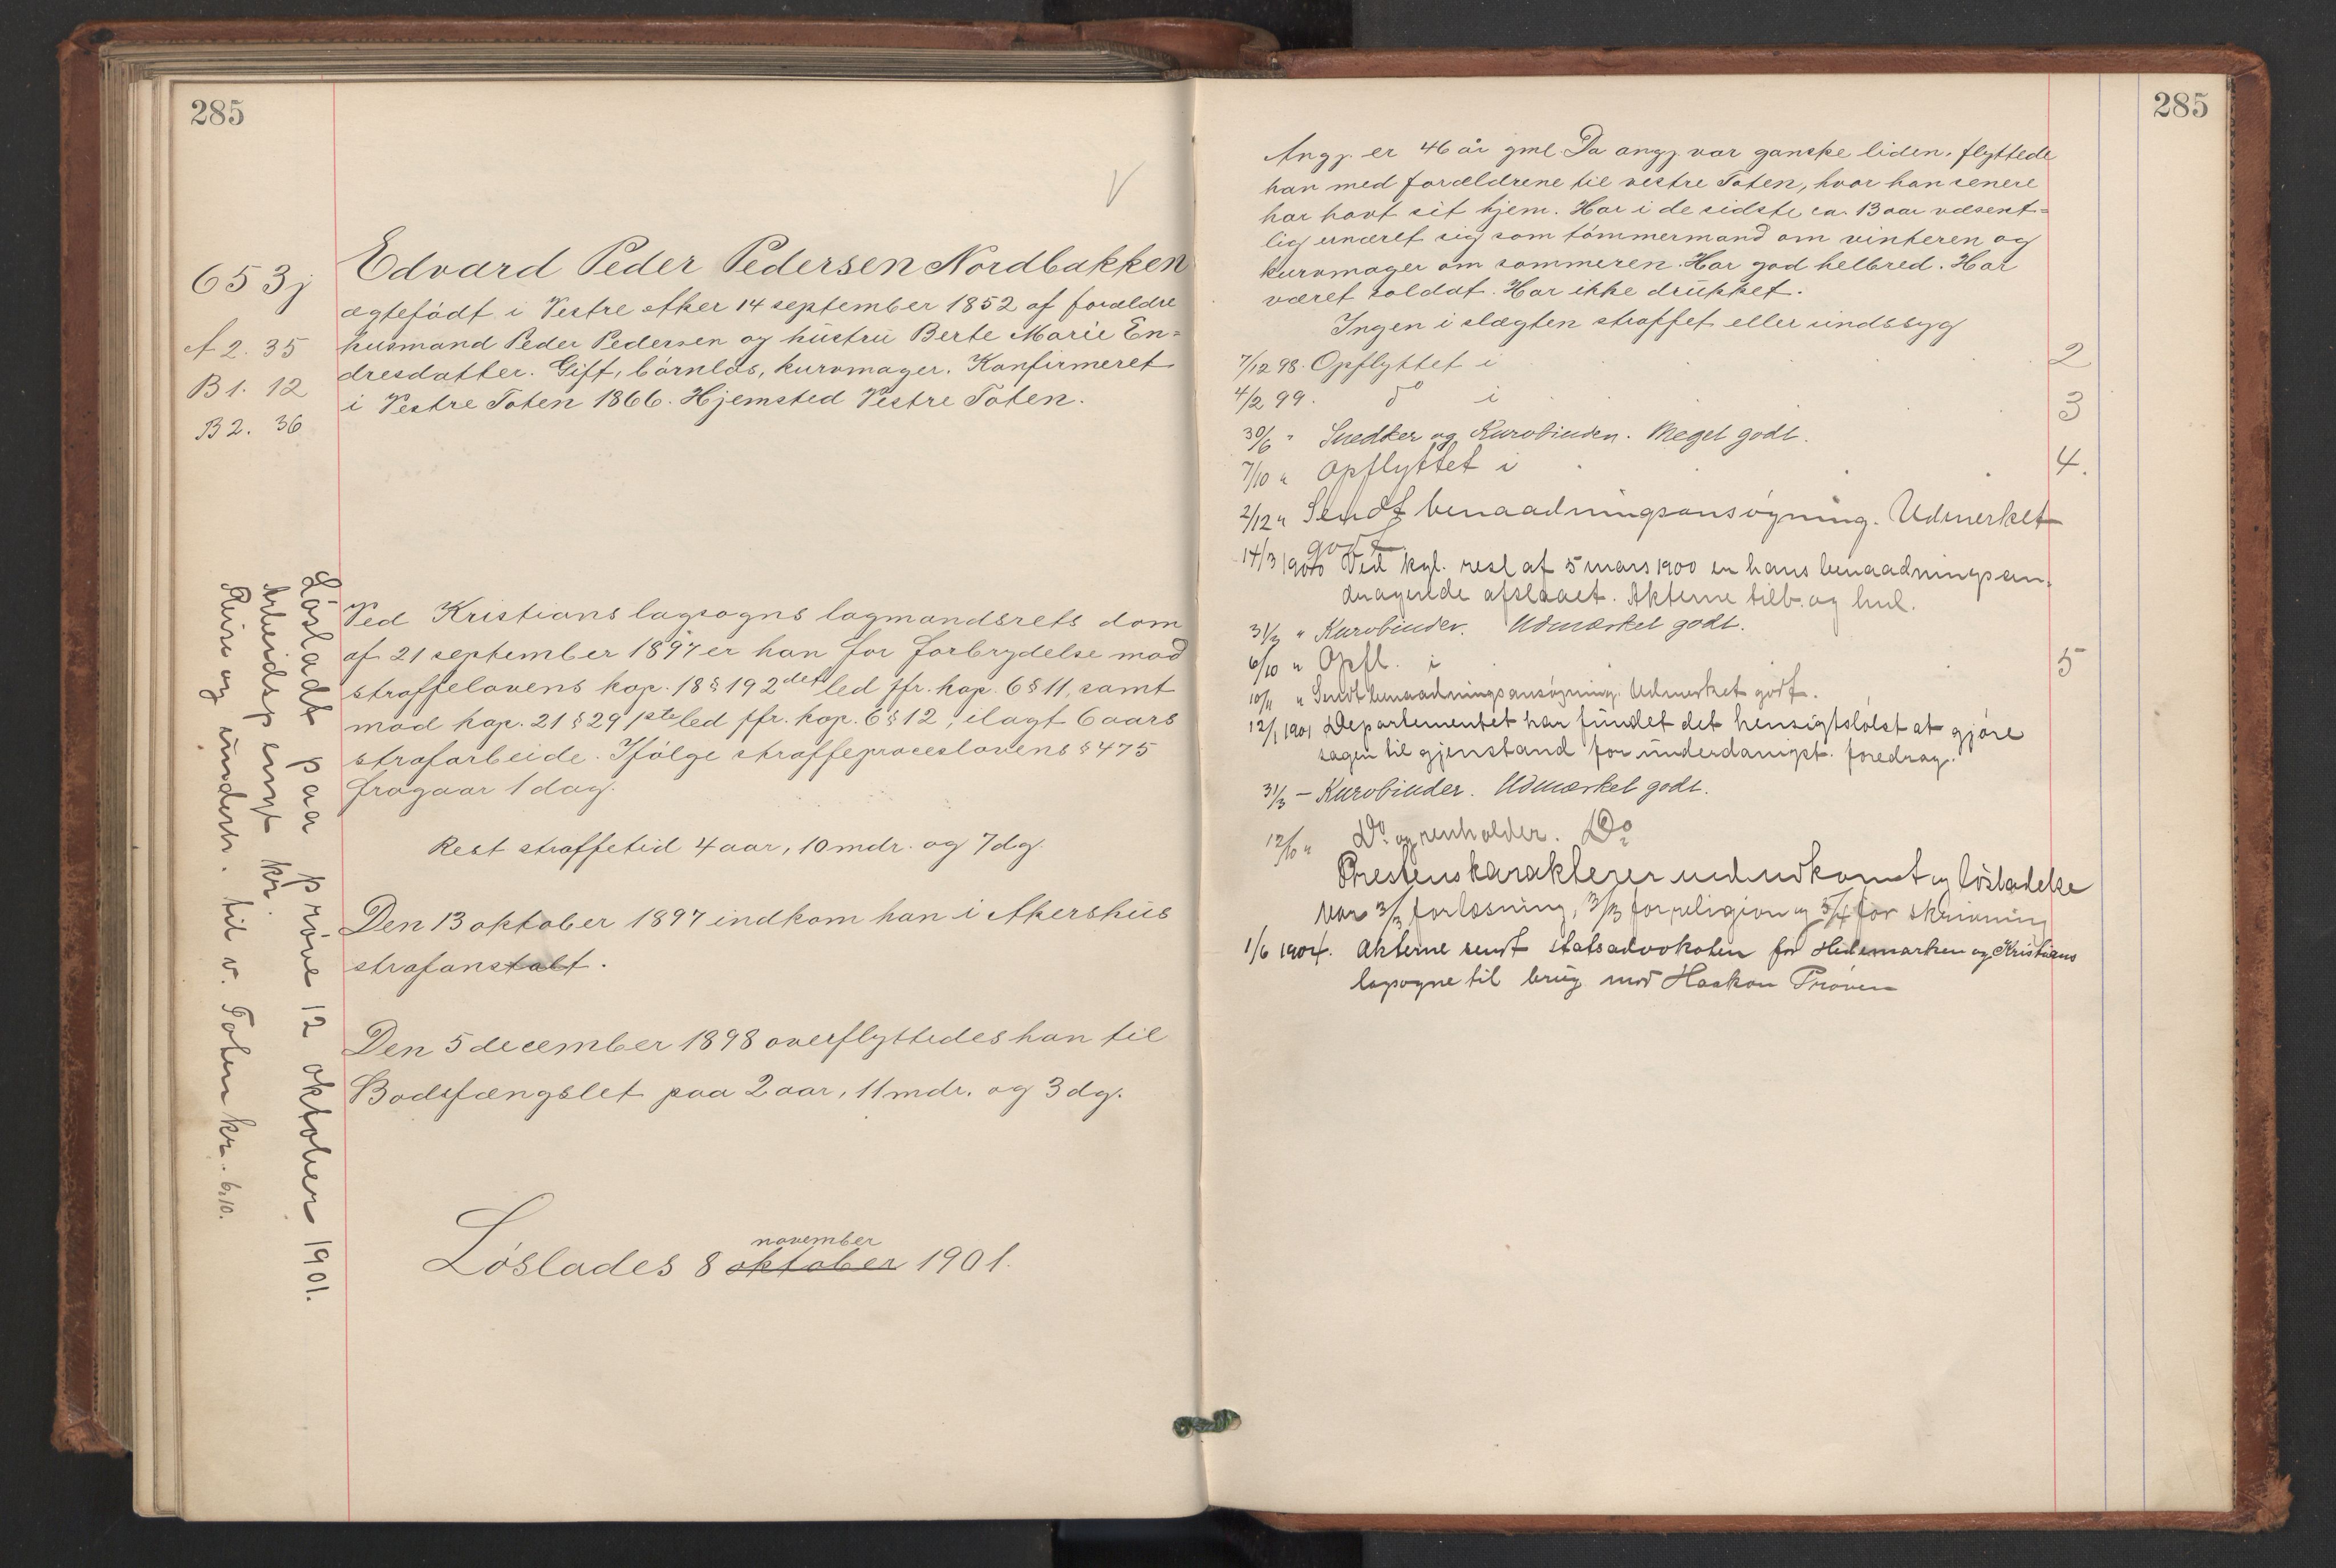 285
V
653j
A 2. 35
B 1. 12
B 2. 36
Edvard Peder Pedersen Nordbakken
ægtefödt i Vestre Aker 14 september 1852 af forældre
husmand Peder Pedersen og hustru Berte Marie En=
dresdatter. Gift, börnlös, kurvmager. Konfirmeret
i Vestre Toten 1866. Hjemsted Vestre Toten.
Ved Kristians lagsogns lagmandsrets dom
af 21 september 1897 er han for forbrydelse mod
straffelovens kap. 18 § 19 2det led jfr. kap. 6 § 11, samt
mod kap. 21 § 29 1ste led jfr. kap. 6 § 12, ilagt 6 aars
strafarbeide. Ifölge straffeproceslovens § 475
fragaar 1 dag.
Rest straffetid 4 aar, 10 mdr. og 7 dg.
Den 13 oktober 1897 indkom han i Akershus
strafanstalt.
Den 5 december 1898 overflyttedes han til
Bodsfængslet paa 2 aar, 11 mdr. og 3 dg.
november
Löslades 8 oktober 1901.
Lösladt paa pröve 12 oktober 1901.
Arbeidspengt kr.
Reise og underh. til v. Toten kr. 6.10.
285
Angj. er 46 år gml. Da angj. var ganske liden, flyttede
han med forældrene til vestre Toten, hvor han senere
har havt sit hjem. Har i de sidste ca. 13 aar væsent=
lig ernæret sig som tömmermand om vinteren og
kurvmager om sommeren. Har god helbred. Har
været soldat. Har ikke drukket.
Ingen i slægten straffet eller sindssyg
7/12 98. Opflyttet i 2
4/2 99. do i 3
30/6 " Snedker og Kurvbinden. Meget godt.
7/10 " Opflyttet i 4.
2/12 " Sendt benaadningsansögning. Udmerket
godt.
14/3 1900 Ved kgl. resl af 5 mars 1900 er hans benaadningsan=
dragende afslaaet. Akterne tilb. og hul.
31/3 " Kurvbinder. Udmærket godt.
6/10 " Opfl. i 5
10/11 " Sendt benaadningsansögning. Udmerket godt.
12/1 1901 Departementet har fundet det hensigtslöst at gjöre
sagen til gjenstand for underdanigst foredrag.
31/3 – Kurvbinder. Udmærket godt.
12/10 " Do og renholder. Do
Prestens karakterer ved udkomst og lösladelse
var 3/3 for læsning, 3/3 for religion og 5/4 for skrivning
1/6 1904. Akterne sendt statsadvokaten for Hedemarken og Kristians
lagsogne til brug mod Haakon Pröven